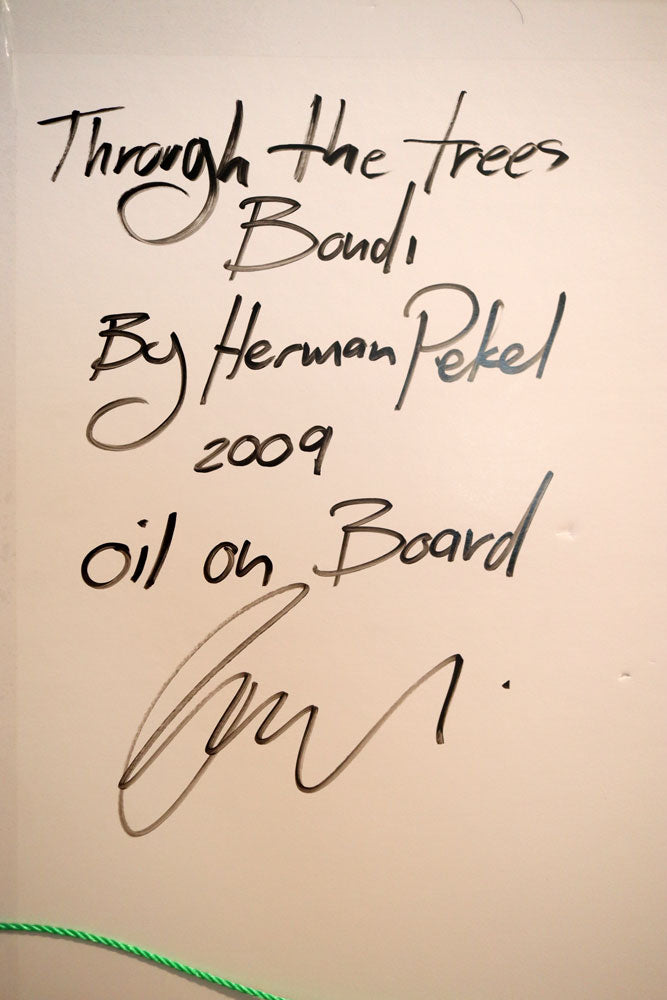 Through the trees
Bondi
By Herman Pekel
2009
oil on Board